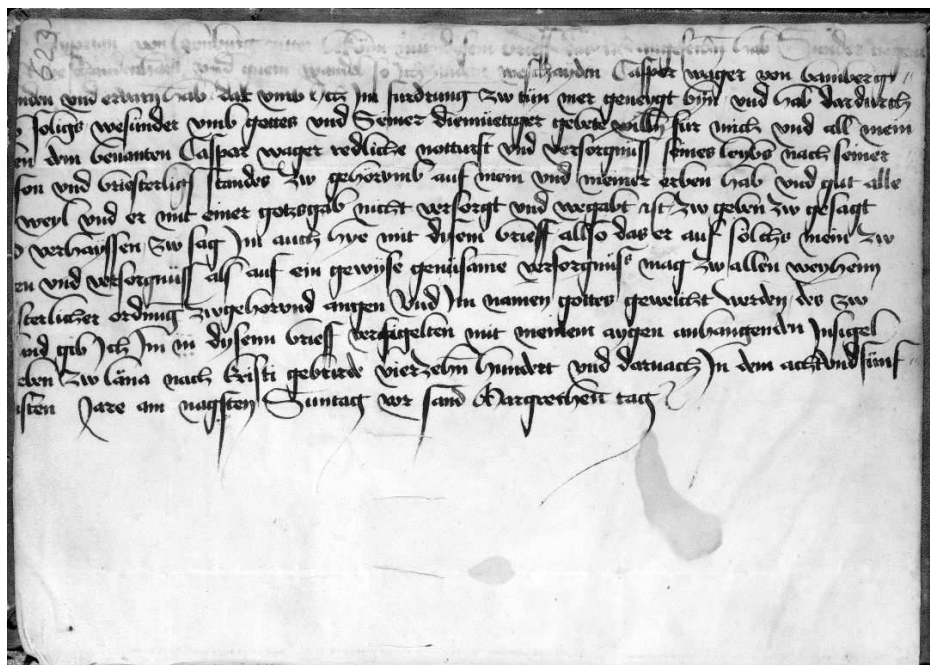 von bekenn mit disem brieff das ich angesehen hab Sunder
und guten wandel so ich an dem weschaiden Caspar wager von bamberg
nden und erfarn hab dar vmb ich Im furdrung zw tun mer geneygt byn vnd hab dardurch
solichs wesunder vmb gottes vnd Seiner diemuetiger gebete willen fur mich vnd all mein
en dem benanten Caspar wager redliche notturft vnd versorgnuss seines leybs nach seiner
son vnd briesterlichs standes zw gehorund auf mein vnd meiner erben hab vnd gut alle
weyl vnd er mit einer gotzgab nicht versorgt vnd wegabt ist zw geben zw gesagt
verhayssen zw sag Im auch hye mit disem brieff allso das er auf solchs mein zw
en vnd versorgnuss als auf ein gewyse genusame versorgnuss mag zw allen weyhenn
sterlicher ordnung zwgehorund vnd Im namen gottes geweicht werden des zw
und gib Ich Im disenn brieff versigelten mit meinem aygen anhangenden Insigel
eben zw lana nach Cristi geburde vierzehn hundert vnd darnach In dem achtvndfunf
isten Jare am nagsten Suntag vor sand Margrethen tag
223